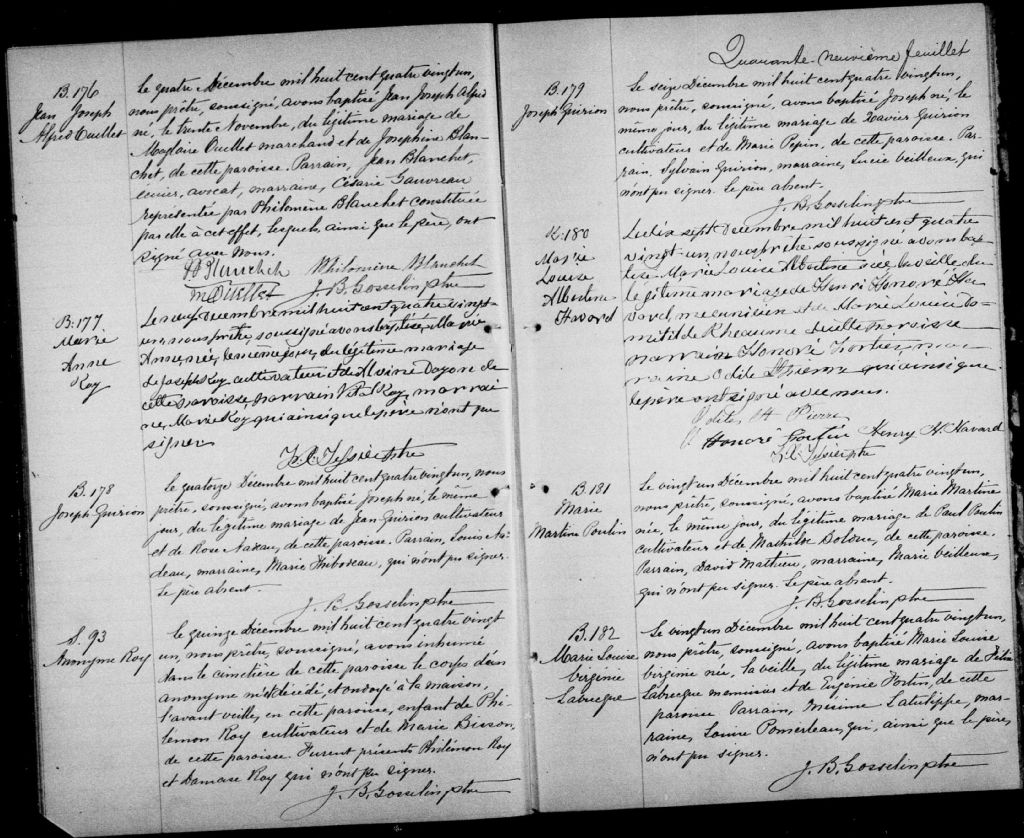 B. 176
Jean Joseph
Alfred Ouellet
Le quatre Décembre mil huit cent quatre vingt un,
nous prêtre, soussigné, avons baptisé Jean Joseph Alfred
né, le trente Novembre, du légitime mariage de
Magloire Ouellet marchand et de Josephine Blan-
chet, de cette paroisse. Parrain, Jean Blanchet,
écuier, avocat, marraine, Césarie Gauvreau
representée par Philomène Blanchet constituée
par elle à cet effet, lesquels, ainsi que le père, ont
signé avec Nous.
J Blanchet Philomine Blanchet
M Ouellet J. B. Gosselin ptre
B. 177
Marie
Anne
Roy
Le neuf Decembre mil huit cent quatre vingt-
un, nous prêtre, soussigné avons baptisé, Marie
Anne, née, le même jour, du légitime mariage
de Joseph Roy cultivateur et de Alvine Doyon de
cette paroisse, parrain Roy, marrai
ne, Marie Roy qui ainsi que le père n'ont pu
signer
ptre
B. 178
Joseph Guirion
Le quatorze Décembre mil huit cent quatre vingt un, nous
prêtre, soussigné, avons baptisé Joseph né, le même
jour, du légitime mariage de Jean Guirion cultivateur
et de Rose Nadeau, de cette paroisse. Parrain, Louis Na-
deau, marraine, Marie Thibodeau, qui n'ont pu signer.
Le père absent.
J. B. Gosselin ptre
S. 93
Anonyme Roy
Le quinze Décembre mil huit cent quatre vingt
un, nous prêtre, soussigné, avons inhumé
dans le cimétière de cette paroisse le corps d'un
anonyme né décédé, et ondoyé à la maison,
l'avant veille, en cette paroisse, enfant de Phi-
lémon Roy cultivateur et de Marie Bisson,
de cette paroisse. Furent présents Philémon Roy
et Damase Roy qui n'ont pu signer.
J. B. Gosselin ptre
Quarante-neuvième feuillet
B. 179
Joseph Guirion
Le seize Décembre mil huit cent quatre vingt un,
nous prêtre, soussigné, avons baptisé Joseph né, le
même jour, du légitime mariage de Xavier Guirion
cultivateur et de Marie Pepin, de cette paroisse. Par-
rain, Sylvain Guirion, marraine, Lucie Veilleux, qui
n'ont pu signer. Le père absent.
J. B. Gosselin ptre
B. 180
Marie
Louise
Albertine
Havard
Le dix sept Decembre mil huit cent quatre
vingt-un, nous prêtre soussigné avons bap-
tisé, Marie Louise Albertine née, la veille du
légitime mariage de Henri Honoré Ha
vard, mecanicien et de Marie Louise Do-
mitilde Rheaume de cette paroisse
parrain Honoré Fortier, mar
raine Odile St Pierre qui ainsi que
le père ont signé avec nous.
Odile St Pierre
Honoré Fortin Henry H. Havard
ptre
B. 181
Marie
Martine Poulin
Le vingt un Décembre mil huit cent quatre vingt un,
nous prêtre, soussigné, avons baptisé Marie Martine
née, le même jour, du légitime mariage de Paul Poulin
cultivateur et de Mathilde Bolduc, de cette paroisse.
Parrain, David Mathieu, marraine, Marie Veilleux,
qui n'ont pu signer. Le père absent.
J. B. Gosselin ptre
B. 182
Marie Louise
Virginie
Labrecque
Le vingt un Décembre mil huit cent quatre vingt un,
nous prêtre, soussigné, avons baptisé Marie Louise
Virginie née, la veille, du légitime mariage de
Labrecque menuisier et de Eugénie Fortin, de cette
paroisse. Parrain, Latulippe, mar-
raine, Louise Pomerleau, qui, ainsi que le père,
n'ont pu signer.
J. B. Gosselin ptre